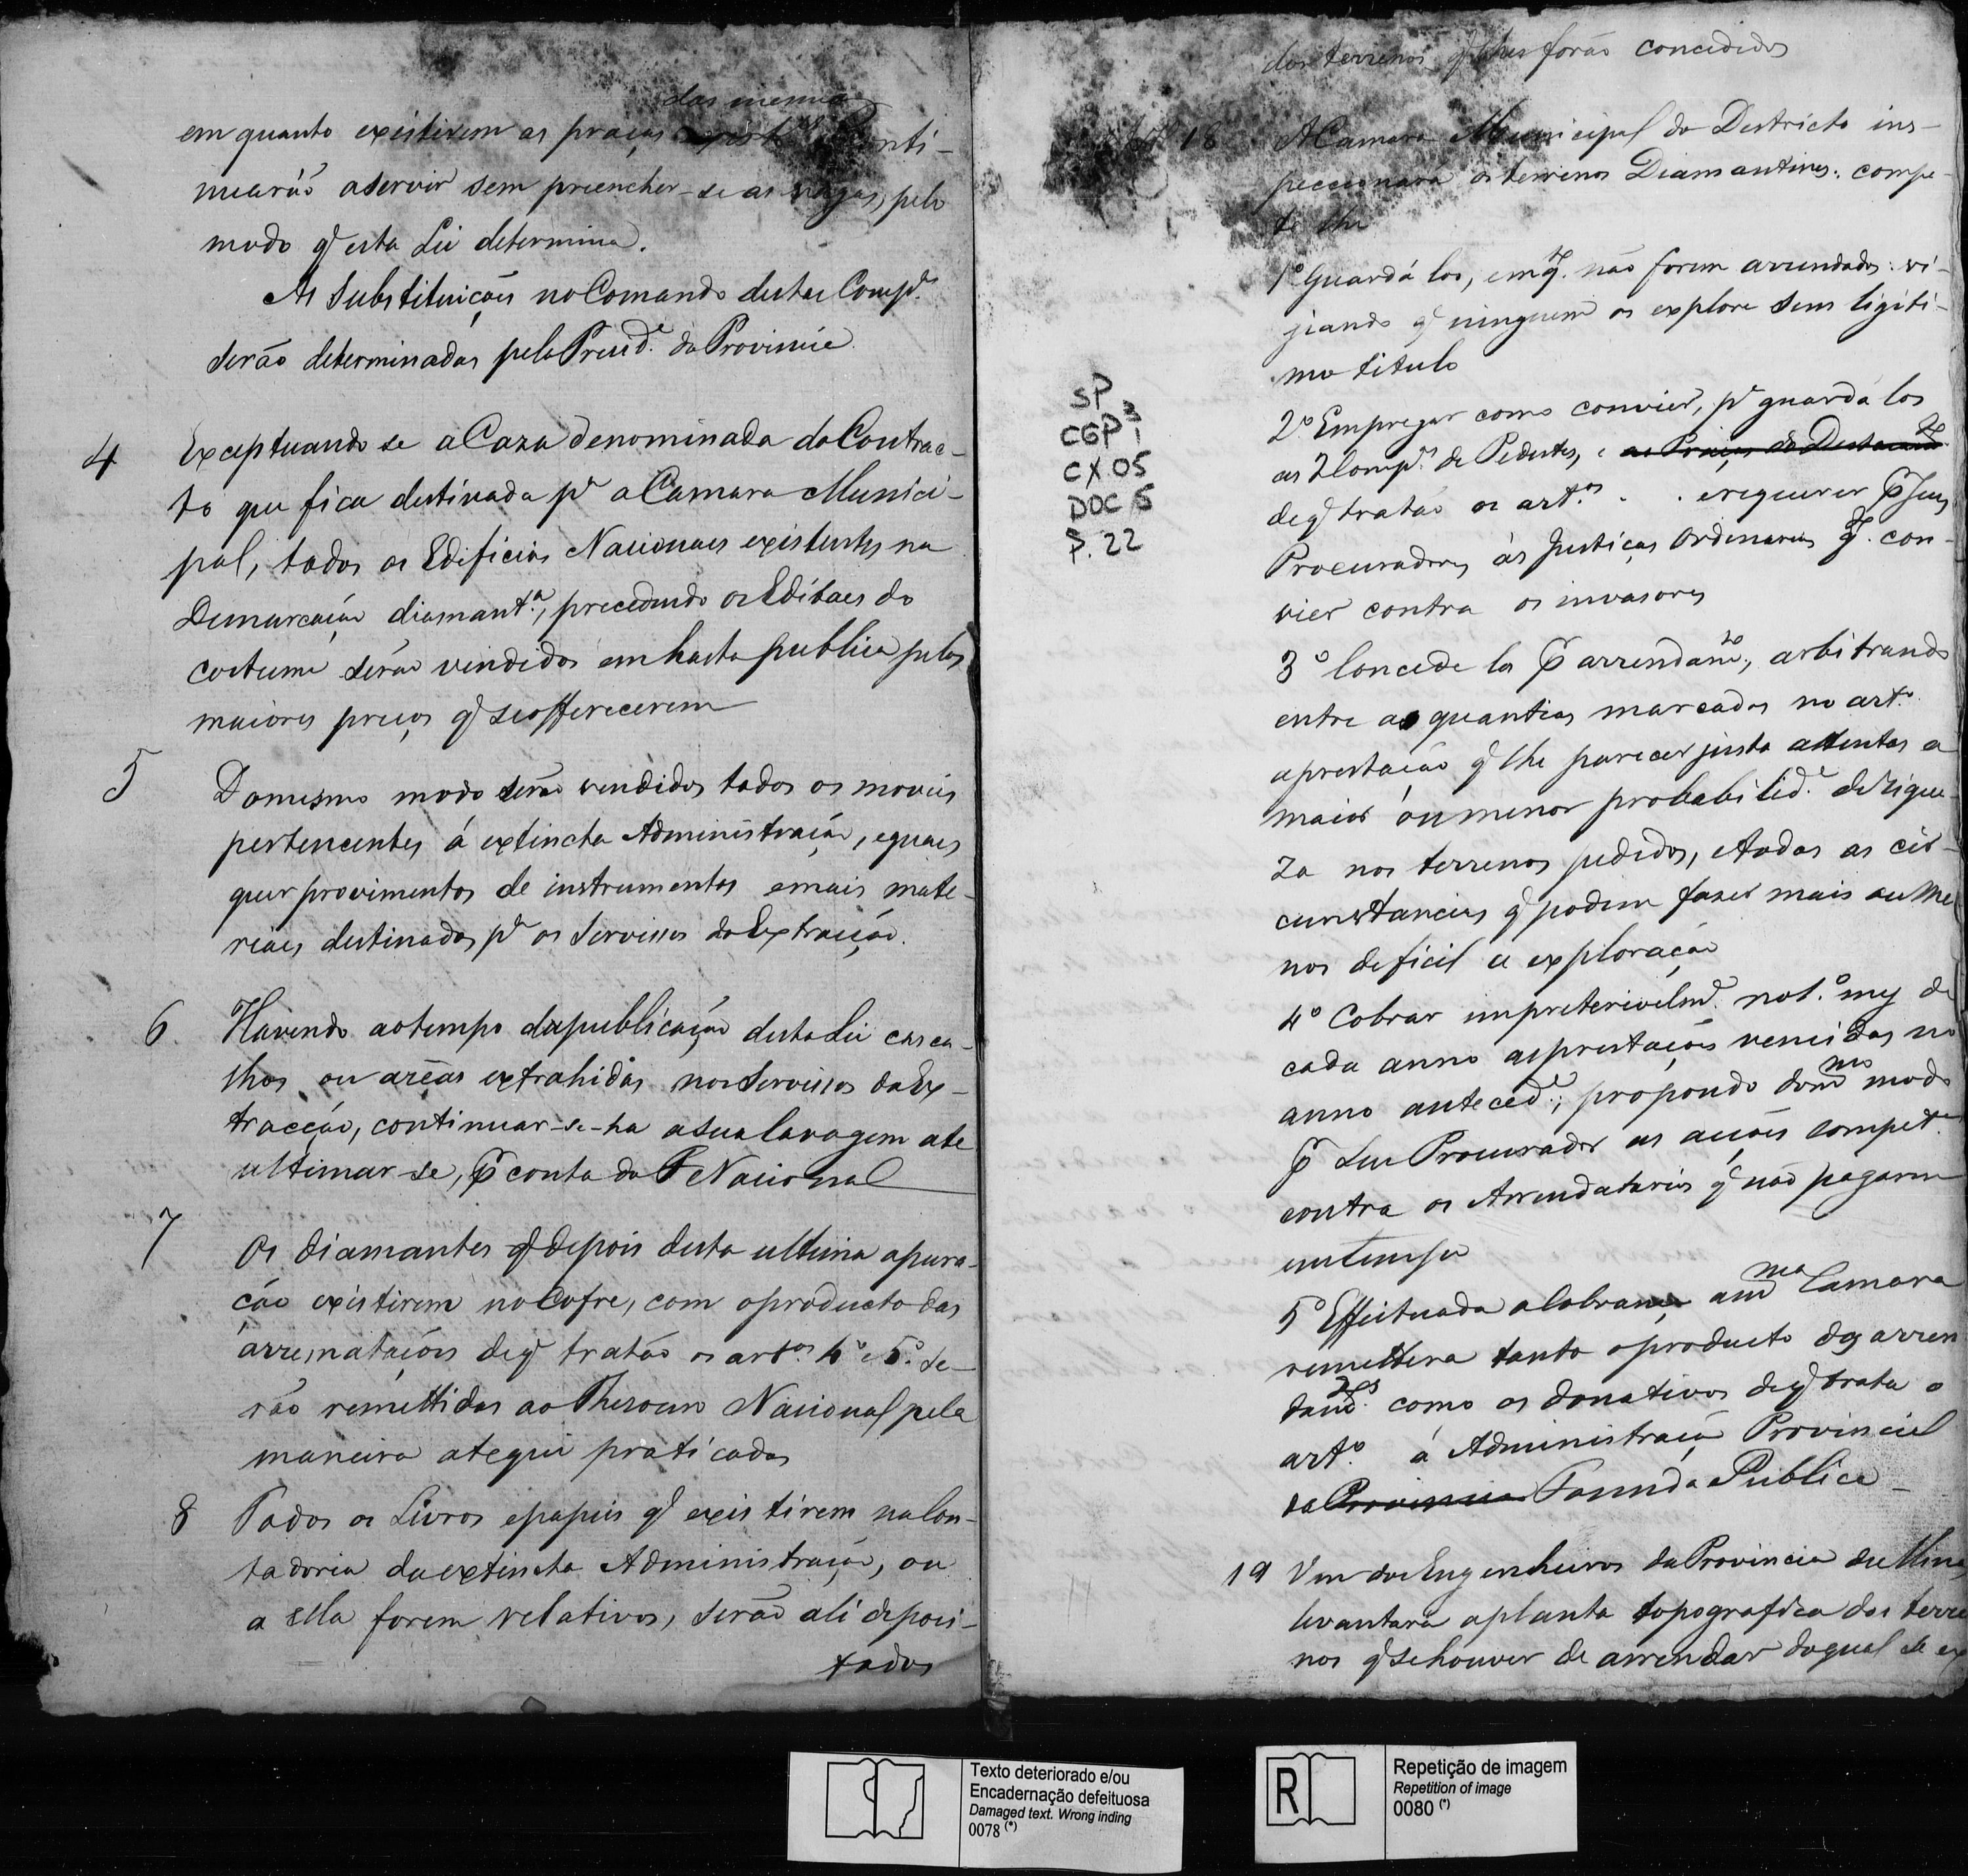 das mesmas
em quanto existirem as praças conti-
nuarão a servir sem preencher-se as vagas, pelo
modo q̃ esta Lei determina.
As Substituições no Comando destas Comp.as
serão determinadas pelo Presid.e da Provincia.
4 Exceptuando se a Caza denominada do Contrac-
to que fica destinada p.a a Camara Munici-
pal, todos os Edificios Nacionaes existentes na
Demarcação diamant.a, precedendo os Editaes do
costume serão vendidos em hasta publica pelos
maiores preços q̃ se offerecerem
5 Do mesmo modo serão vendidos todos os moveis
pertencentes á extincta Administração, e quaes
quer provimentos de instrumentos e mais mate-
riaes destinados p.a os Servissos da Extracção.
6 Havendo ao tempo da publicação desta Lei casca-
lhos ou arêas extrahidas nos Servissos da Ex-
tracção, continuar-se-ha a sua lavagem ate
ultimar-se, p̃ conta da F Nacional
7 Os diamantes q̃ depois desta ultima apura-
ção existirem no Cofre, com o producto das
arrematações de q̃ tratão os art.os 4.o e 5.o se-
rão remettidos ao Thesouro Nacional pela
maneira atequi praticada
8 Todos os Livros e papeis q̃ existirem na Con-
tadoria da extincta Administração, ou
a ella forem relativos, serão ali deposi-
tados
dos terrenos q̃ lhes forão concedidos
18 A Camara Municipal do Destricto ins-
peccionará os terrenos Diamantinos: compe-
te lhe
1o Guardá los, emq.to não forem arrendados: vi-
giando q̃ ninguem os explore sem legiti-
mo titulo
2o Empregar como convier, p.a guardá los
as 2 Comp.as de Pedestres, e as Praças do Destacam.to
de q̃ tratão os art.os . . e requerer p̃ seus
Procuradores ás Justiças Ordinarias q.to con-
vier contra os invasores
3o Concede los p̃ arrendam.to, arbitrando
entre as quantias marcadas no art.o
a prestação q̃ lhe parecer justa attentas a
maior ou menor probabilid.e de rique-
za nos terrenos pedidos, e todas as cir-
cunstancias q̃ podem fazer mais ou me
nos deficil a exploração
4o Cobrar impreterivelm.e no 1.o mez de
cada anno as prestações vencidas no
anno anteced.e; propondo do m.mo modo
p̃ seu Procurador as acções compet.es
contra os Arrendatarios q̃ não pagarem
em tempo
5o Effeituada a Cobrança a m.ma Camara
remetterá tanto o producto dos arren
dam.tos como os donativos de q̃ trata o
art.o á Administração Provincial
da Provincia Fazenda Publica
19 Um dos Engenheiros da Provincia de Minas
levantará a planta topografica dos terre
nos q̃ se houver de arrendar do qual se ex
SP
CGP 1
CX.05
DOC 5
P. 22
Texto deteriorado e/ou
Encadernação defeituosa
Damaged text. Wrong inding
0078 (*)
R
Repetição de imagem
Repetition of image
0080 (*)